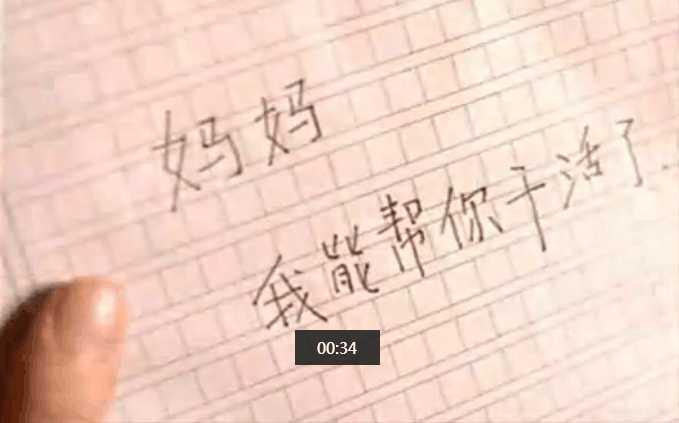 妈妈
我能帮你干活了
00:34